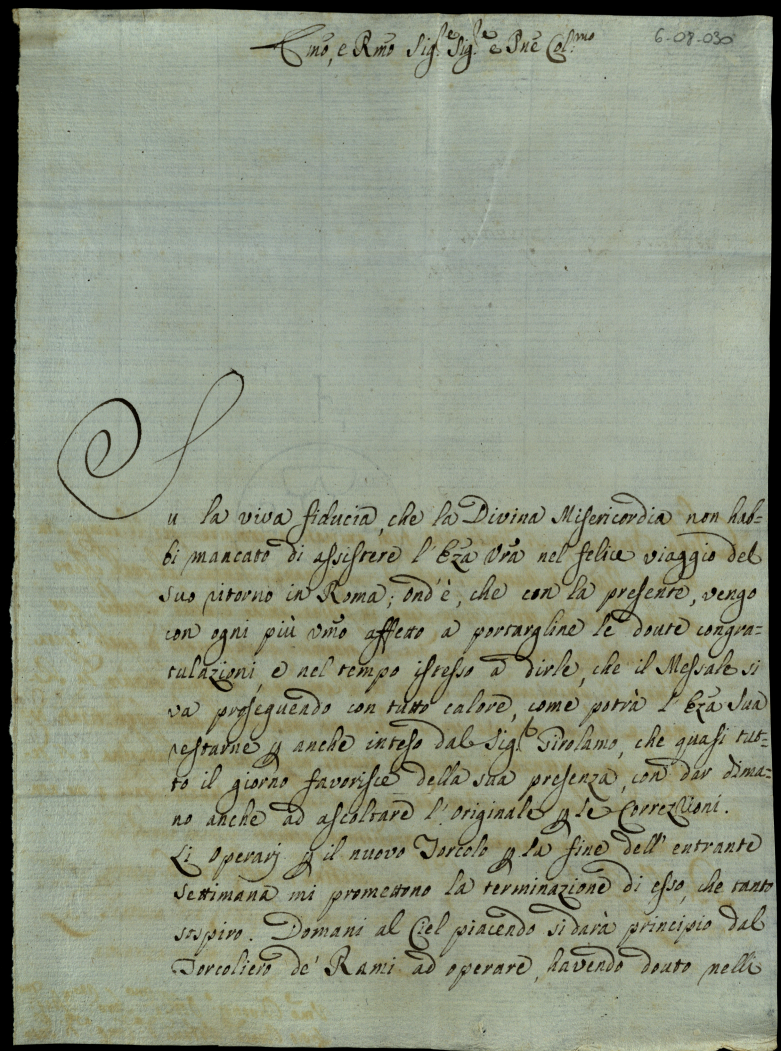 6-08-030
Emo, e Rmo Sigre Sigre e Pne Colmo
Su la viva fiducia, che la Divina Misericordia non hab=
bi mancato di assistere l'Eza Vra nel felice viaggio del
suo ritorno in Roma; ond'è, che con la presente, vengo
con ogni più Vmo affetto a portargline le doute congra=
tulazioni, e nel tempo istesso a dirle, che il Messale si
va proseguendo con tutto calore, come potrà l'Eza Sua
restarne p anche inteso dal Sigr Girolamo, che quasi tut=
to il giorno favorisce della sua presenza, con dar di ma=
no anche ad ascoltare l'originale p le Correzzioni.
Li Operarj p il nuovo Torcolo p la fine dell'entrante
Settimana mi promettono la terminazione di esso, che tanto
sospiro. Domani al Ciel piacendo si darà principio dal
Torcoliero de' Rami ad operare, havendo douto nelli